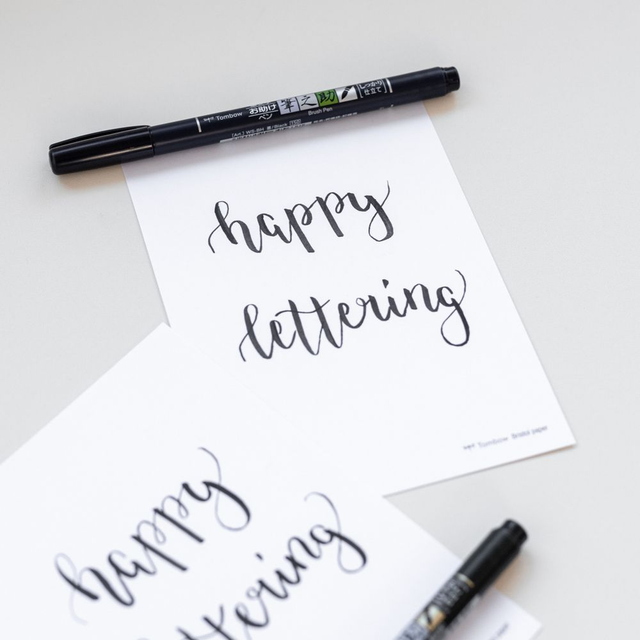 Tombow お助けペン 筆之助 しっかり仕立て
Brush Pen
happy
lettering
Tombow Bristol paper
happy
ttering